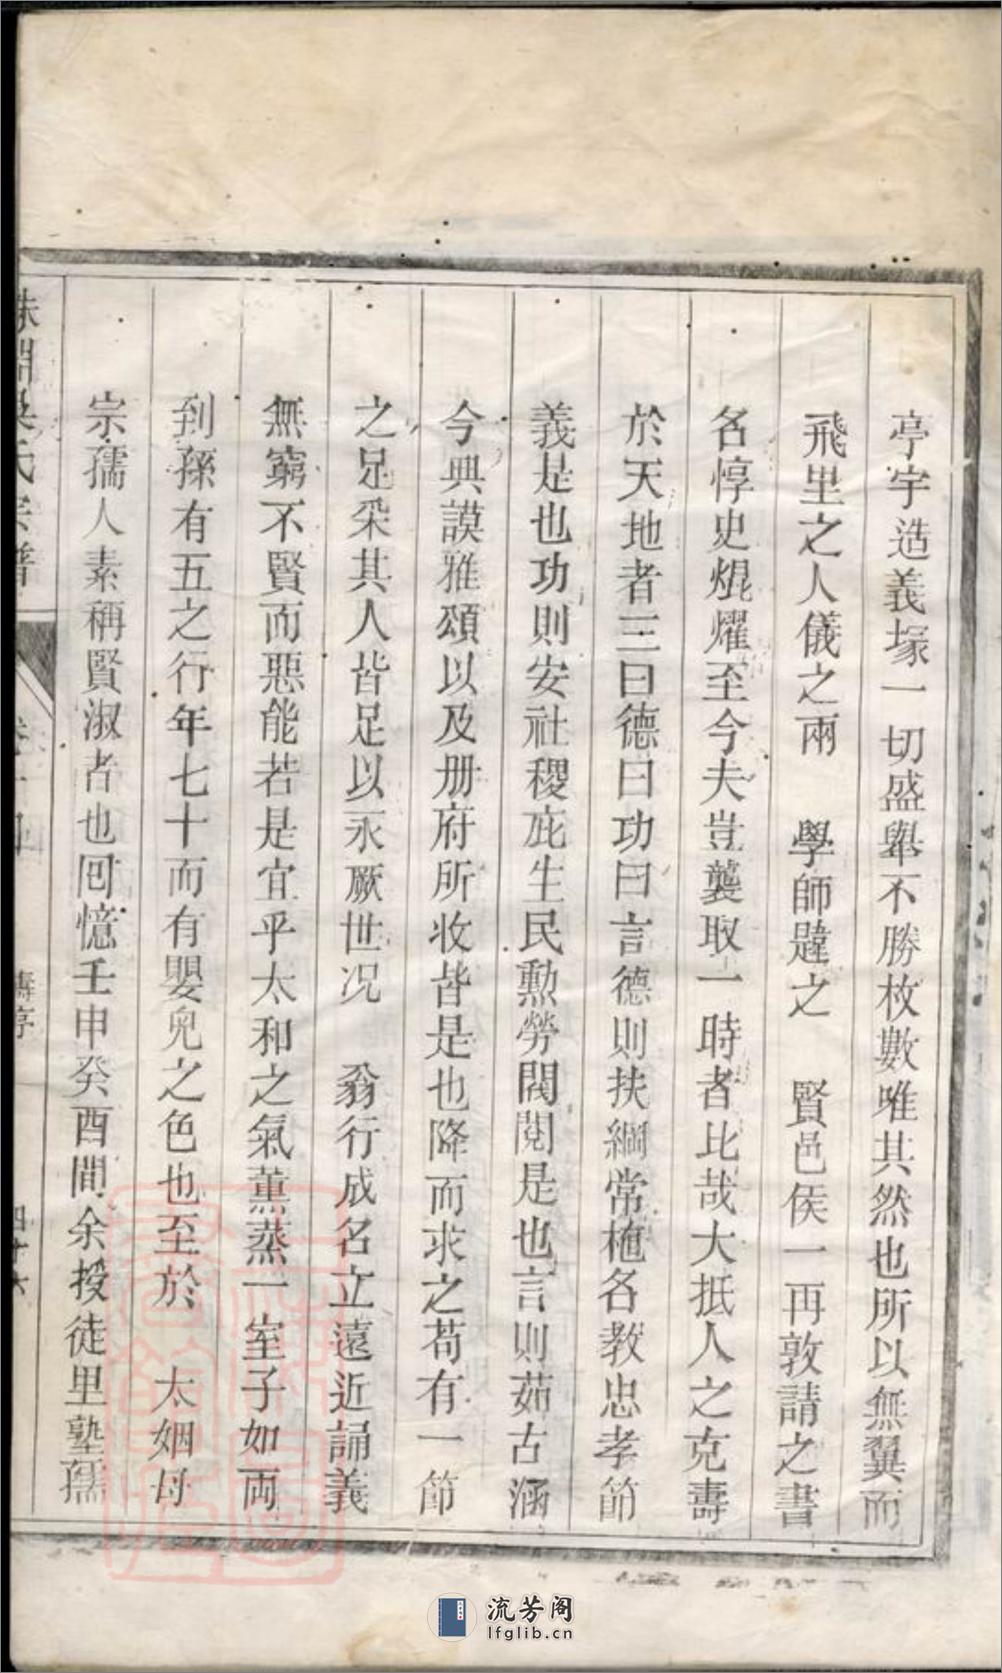 亭宇造義塚一切盛舉不勝枚數唯其然也所以無翼而
飛里之人儀之兩 學師韙之 賢邑侯一再敦請之書
名惇史焜燿至今夫豈襲取一時者比哉大抵人之克壽
於天地者三曰德曰功曰言德則扶綱常植名教忠孝節
義是也功則安社稷庇生民勲勞閥閱是也言則茹古涵
今典謨雅頌以及册府所收皆是也降而求之苟有一節
之足采其人皆足以永厥世况 翁行成名立遠近誦義
無窮不賢而惡能若是宜乎太和之氣薫蒸一室子如両
到孫有五之行年七十而有嬰兒之色也至於 太姻母
宗孺人素稱賢淑者也囘憶壬申癸酉間余授徒里塾孺
吳氏宗譜
壽序
四十六
流芳阁
lfglib.cn